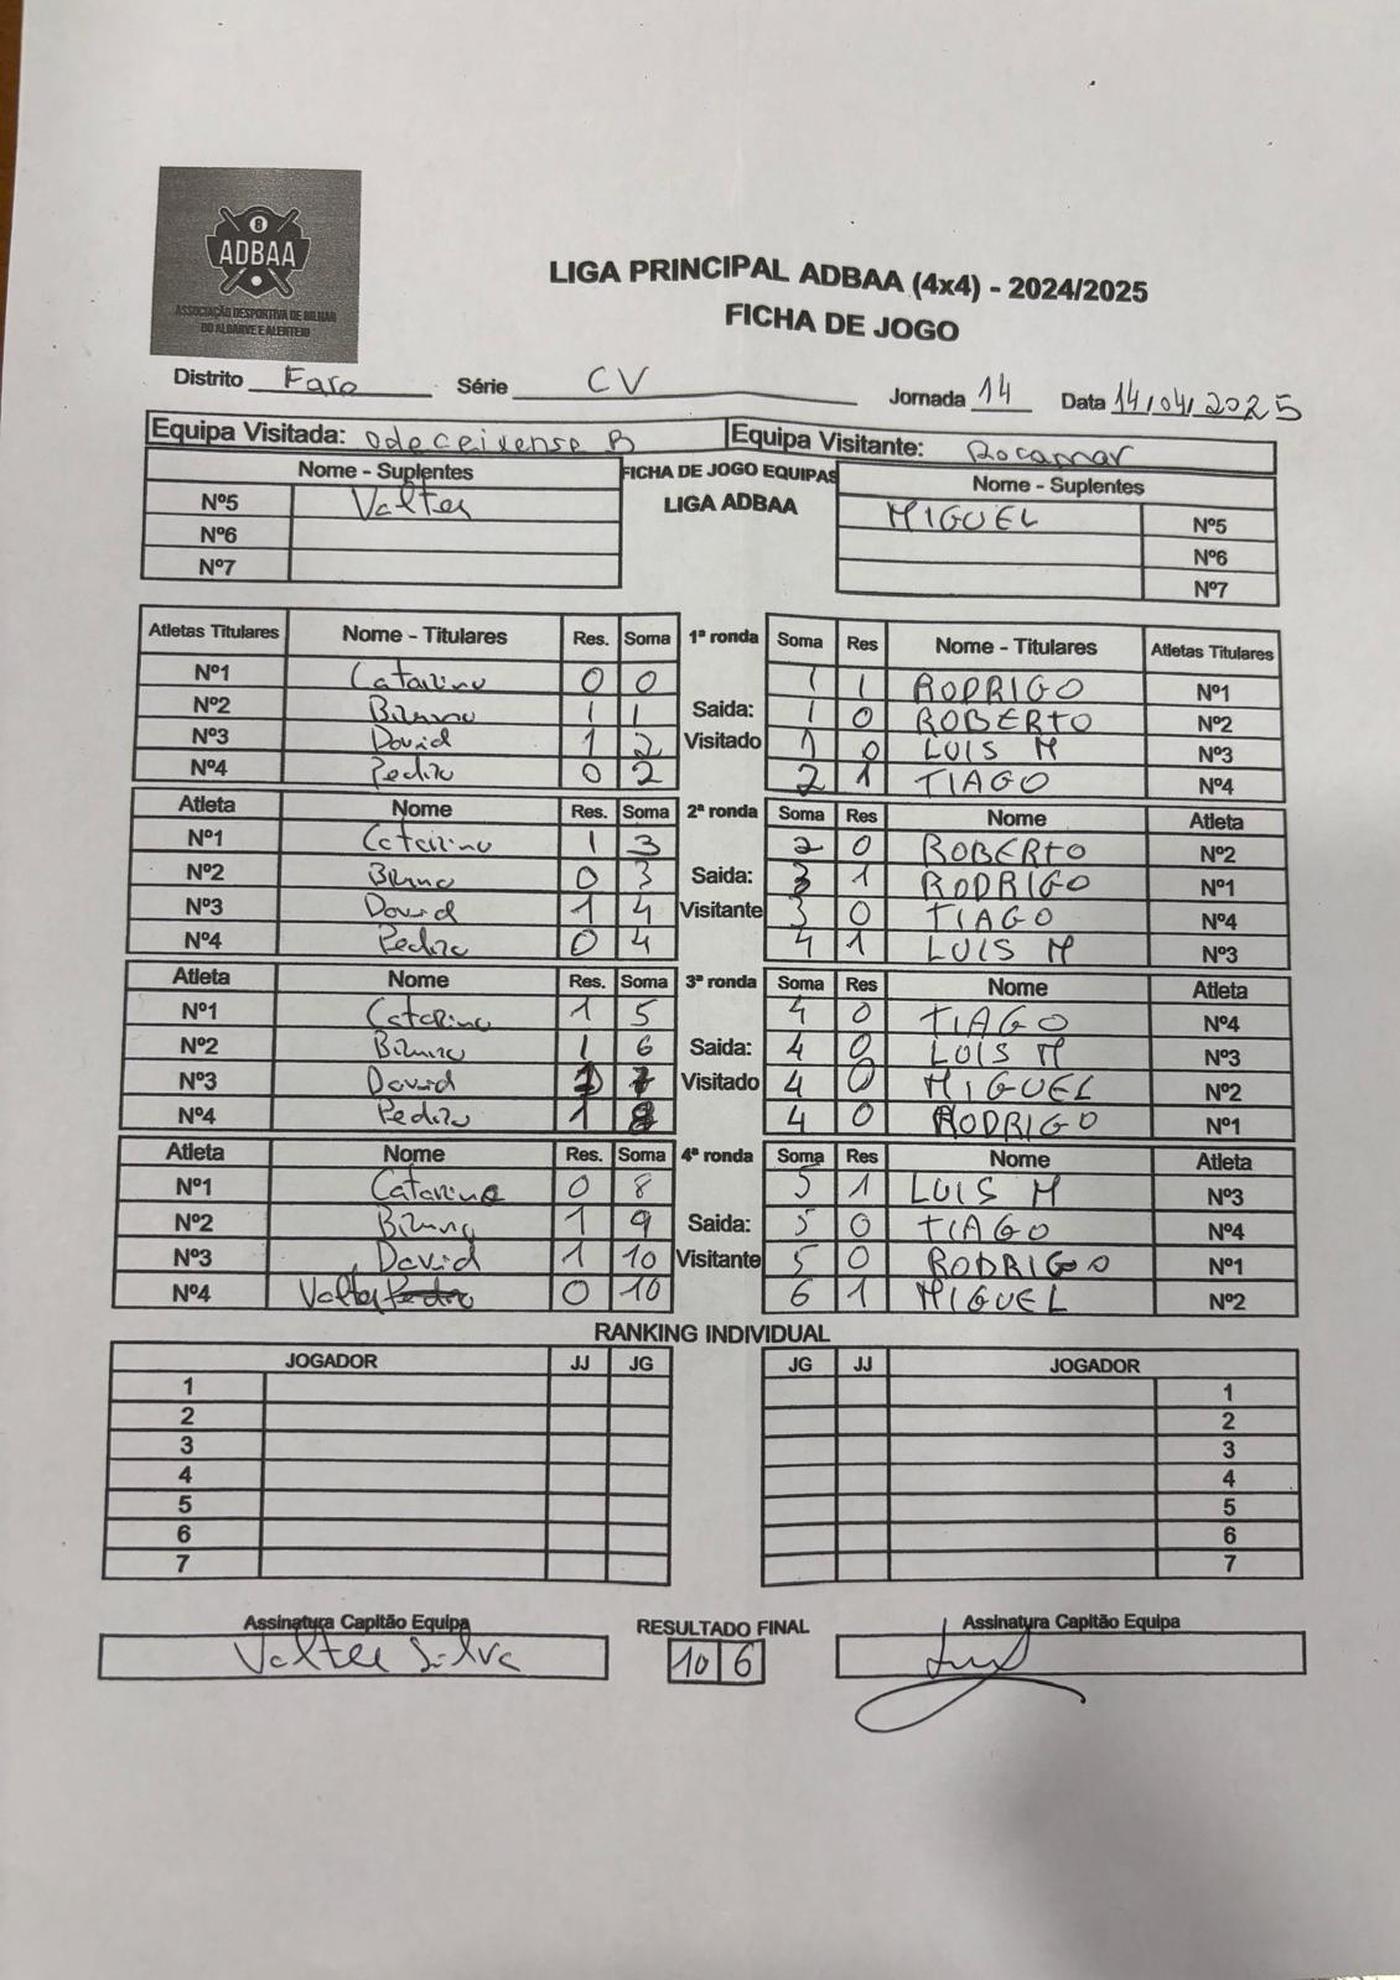 8
ADBAA
ASSOCIAÇÃO DESPORTIVA DE BILHAR
DO ALGARVE E ALENTEJO
LIGA PRINCIPAL ADBAA (4x4) - 2024/2025
FICHA DE JOGO
Distrito Faro Série CV Jornada 14 Data 14/04/2025
Equipa Visitada: Odeceixense B Equipa Visitante: Rocamar
Nome - Suplentes FICHA DE JOGO EQUIPAS Nome - Suplentes
Nº5 Valter LIGA ADBAA MIGUEL Nº5
Nº6 Nº6
Nº7 Nº7
Atletas Titulares Nome - Titulares Res. Soma 1ª ronda Soma Res Nome - Titulares Atletas Titulares
Nº1 Catarina 0 0 1 1 RODRIGO Nº1
Nº2 Bruno 1 1 Saida: 1 0 ROBERTO Nº2
Nº3 David 1 2 Visitado 1 0 LUIS M Nº3
Nº4 Pedro 0 2 2 1 TIAGO Nº4
Atleta Nome Res. Soma 2ª ronda Soma Res Nome Atleta
Nº1 Catarina 1 3 2 0 ROBERTO Nº2
Nº2 Bruno 0 3 Saida: 3 1 RODRIGO Nº1
Nº3 David 1 4 Visitante 3 0 TIAGO Nº4
Nº4 Pedro 0 4 4 1 LUIS M Nº3
Atleta Nome Res. Soma 3ª ronda Soma Res Nome Atleta
Nº1 Catarina 1 5 4 0 TIAGO Nº4
Nº2 Bruno 1 6 Saida: 4 0 LUIS M Nº3
Nº3 David 1 7 Visitado 4 0 MIGUEL Nº2
Nº4 Pedro 1 8 4 0 RODRIGO Nº1
Atleta Nome Res. Soma 4ª ronda Soma Res Nome Atleta
Nº1 Catarina 0 8 5 1 LUIS M Nº3
Nº2 Bruno 1 9 Saida: 5 0 TIAGO Nº4
Nº3 David 1 10 Visitante 5 0 RODRIGO Nº1
Nº4 Valter Pedro 0 10 6 1 MIGUEL Nº2
RANKING INDIVIDUAL
JOGADOR JJ JG JG JJ JOGADOR
1 1
2 2
3 3
4 4
5 5
6 6
7 7
Assinatura Capitão Equipa RESULTADO FINAL Assinatura Capitão Equipa
Valter Silva 10 6